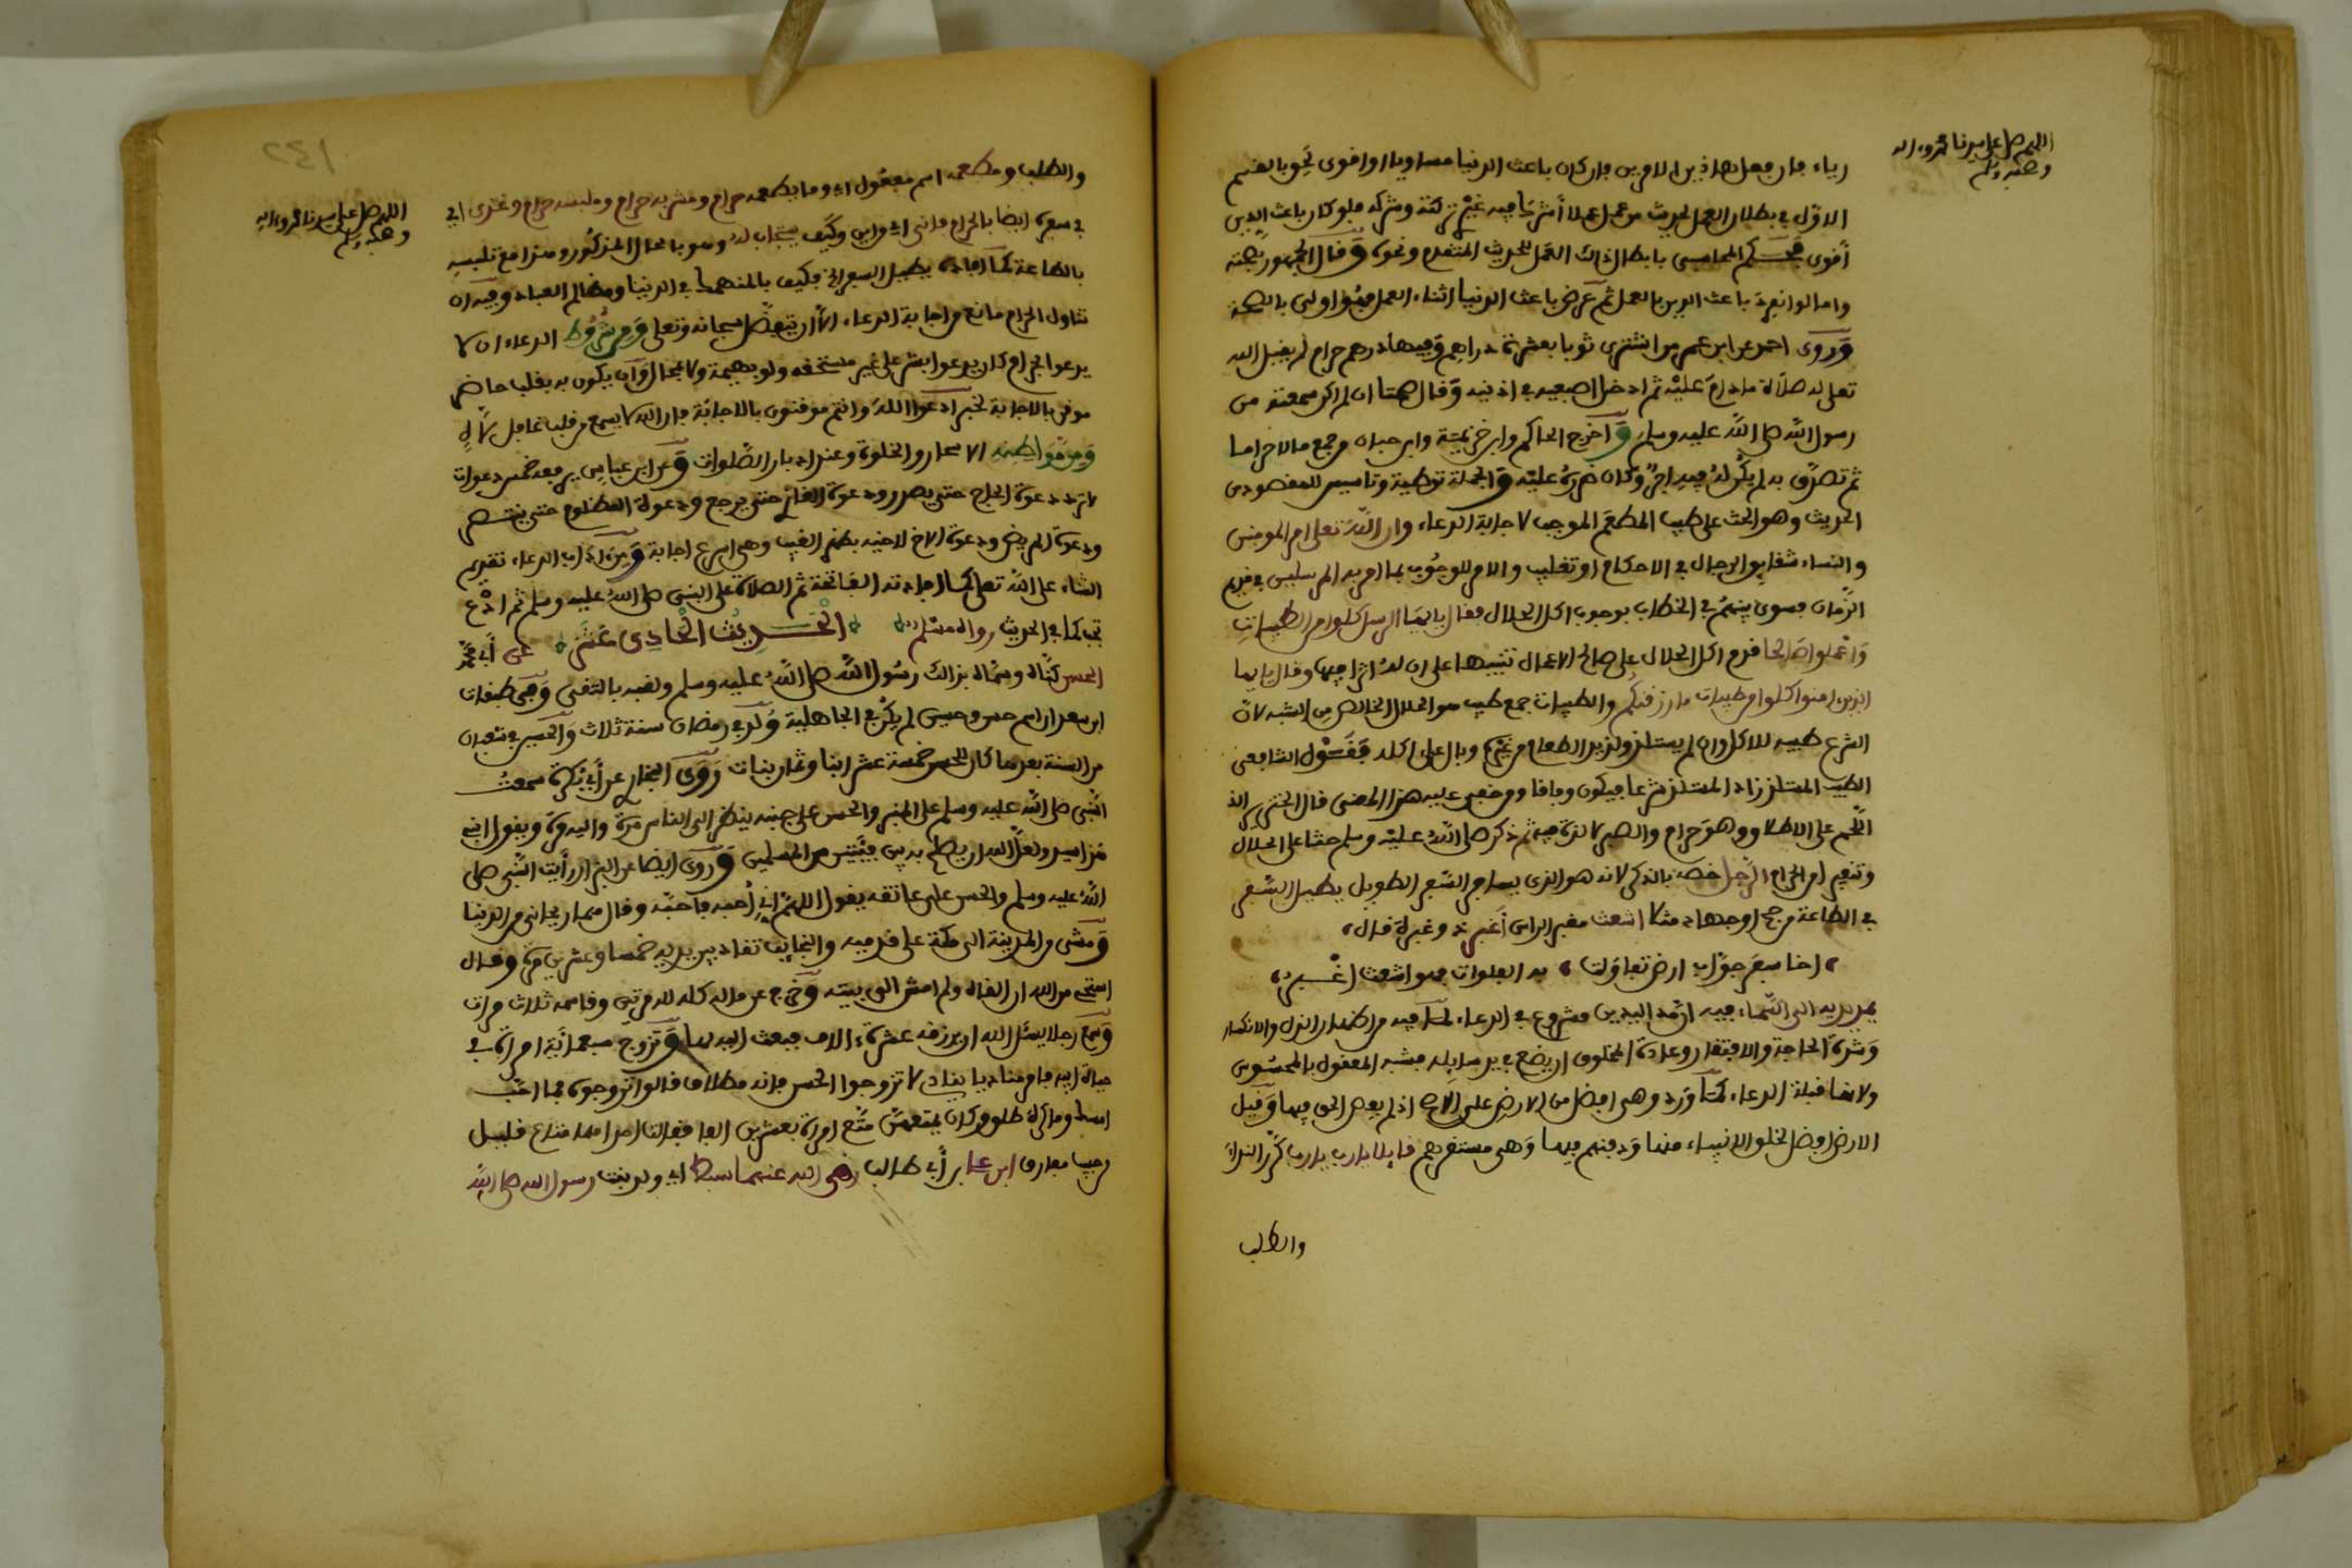 اللهم صل على سيدنا محمد وءاله
وصحبه وسلم
رياء فان فعل لهاذين الامرين فان كان باعث الدنيا مساويا او اقوى نحو بالقسم
الاول في بطلان العمل لحديث من عمل عملا أشرك فيه غيري تركته وشركه فلو كان باعث الدين
أقوى فحكم المحاسبي بابطال ذالك العمل للحديث المتقدم ونحوه وقال الجمهور بصحته
واما لو انفرد باعث الدين بالعمل ثم عرض باعث الدنيا اثناء العمل فهو اولى بالصحة
وروى احمد عن ابن عمر من اشترى ثوبا بعشرة دراهم وفيها درهم حرام لم يقبل الله
تعالى له صلاة ما دام عليه ثم ادخل اصبعيه في اذنيه وقال صمتا ان لم اكن سمعته من
رسول الله صلى الله عليه وسلم وأخرج الحاكم وابن خزيمة وابن حبان من جمع مالا حراما
ثم تصدق به لم يكن له فيه اجر وكان اصره عليه والجملة توطية وتاسيس للمقصود من
الحديث وهو الحث على طيب المطعم الموجب لاجابة الدعاء وان الله تعالى امر المومنين
والنساء شقايق الرجال في الاحكام او تغليب والامر للوجوب بما امر به المرسلين في قديم
الزمان فسوى بينهم في الخطاب بوجوب اكل الحلال فقال يايها الرسل كلوا من الطيبات
واعملوا صالحا قدم اكل الحلال على صالح الاعمال تنبيها على ان له اثرا فيها وقال يايها
الذين امنوا كلوا من طيبات ما رزقنكم والطيبات جمع طيب هو الحلال الخالص من الشبه لان
الشرع طيبه للاكل وان لم يستلذ ولذيذ الطعام من غيره وبال على اكله فقول الشافعي
الطيب المستلذ زاد المستلذ شرعا فيكون وفاقا ومن خفي عليه هذا المعنى قال الخنزير الذ
اللحم على الاطلاق وهو حرام والصبر لا لذة فيه ثم ذكر صلى الله عليه وسلم حثا على الحلال
وتنفير امن الحرام الرجل خصه بالذكر لانه هو الذى يسافر السفر الطويل يطيل السفر
في الطاعة من حج او جهاد مثلا اشعث مغبر الراس أغبر ذو غبرة قال
اخا سفر جواب ارض تقاذفت به الفلوات فهو اشعث اغبر
يمد يديه الى السماء فيه ان مد اليدين مشروع في الدعاء لما فيه من اظهار الذل والانكسار
وشدة الحاجة والافتقار وعادة المخلوق ان يضع في يد سايله فشبه المعقول بالمحسوس
ولانها قبلة الدعاء كما ورد وهي افضل من الارض على الاصح اذ لم يعص الحق فيها وقيل
الارض افضل لخلق الانبياء منها ودفنهم فيها وهي مستقرهم قايلا يارب يارب كرر النداء
والطلب
١٤٢
اللهم صل على سيدنا محمد وءاله
وصحبه وسلم
والطلب ومطعمه اسم مفعول اى وما يطعمه حرام ومشربه حرام وملبسه حرام وغذى اي
في سفره ايضا بالحرام فانى اى من اين وكيف يستجاب له وهو بالحال المذكور وهذا مع تلبسه
بالطاعة كما افاده يطيل السفر الخ فكيف بالمنهمك في الدنيا ومظالم العباد وفيه ان
تناول الحرام مانع من اجابة الدعاء الا أن يتفضل سبحانه وتعلى ومن شروط الدعاء ان لا
يدعوا بحرام كان يدعوا بشر على غير مستحقه ولو بهيمة ولا بمحال وأن يكون به بقلب حاضر
موقن بالاجابة لخبر ادعوا الله وانتم موقنون بالاجابة فان الله لا يسمع من قلب غافل لاه
ومن مواطنه الاسحار والخلوة وعند ادبار الصلوات وعن ابن عباس يرفعه خمس دعوات
لا ترد دعوة الحاج حتى يصدر ودعوة الغازي حتى يرجع ودعوة المظلوم حتى ينتصر
ودعوة المريض ودعوة الاخ لاخيه بظهر الغيب وهي اسرع اجابة ومن اداب الدعاء تقديم
الثناء على الله تعلى كما افادته الفاتحة ثم الصلاة على النبي صلى الله عليه وسلم ثم ادع
تجب كما في الحديث رواه مسلم الحديث الحادي عشر عن أبي محمد
الحسن كناه وسماه بذالك رسول الله صلى الله عليه وسلم ولقبه بالتقي وفى طبقات
ابن سعد ان اسم حسن وحسين لم يكن في الجاهلية ولد في رمضان سنة ثلاث والحسين في شعبان
من السنة بعدها كان للحسن خمسة عشر ابنا وثمان بنات روى البخاري عن أبي بكرة سمعت
النبي صلى الله عليه وسلم على المنبر والحسن على جنبه ينظر الى الناس مرة واليه مرة ويقول ابني
هذا سيد ولعل الله ان يصلح به بين فئتين من المسلمين وروى ايضا عن البراء رأيت النبي صلى
الله عليه وسلم والحسن على عاتقه يقول اللهم إني أحبه فأحبه وقال هما ريحانتي من الدنيا
ومشى من المدينة الى مكة على قدميه والنجايب تقاد بين يديه خمسا وعشرين مرة وقال
استحي من الله ان القاه ولم امش الى بيته وخرج عن ماله كله لله مرتين وقاسمه ثلاث مرات
وسمع رجلا يسئل الله ان يرزقه عشرة ءالاف فبعث اليه بها وتزوج سبعمائة امراة في
حياة ابيه فامر مناديا ينادى لا تزوجوا الحسن فانه مطلاق قالوا نزوجوه فما احب
امسك وما كره طلق وكان يمتعهن متع امراة بعشرين الفا فقالت لما اتاها متاع قليل
من حبيب مفارق ابن علي بن أبي طالب رضى الله عنهما سبط اى ولد بنت رسول الله صلى الله